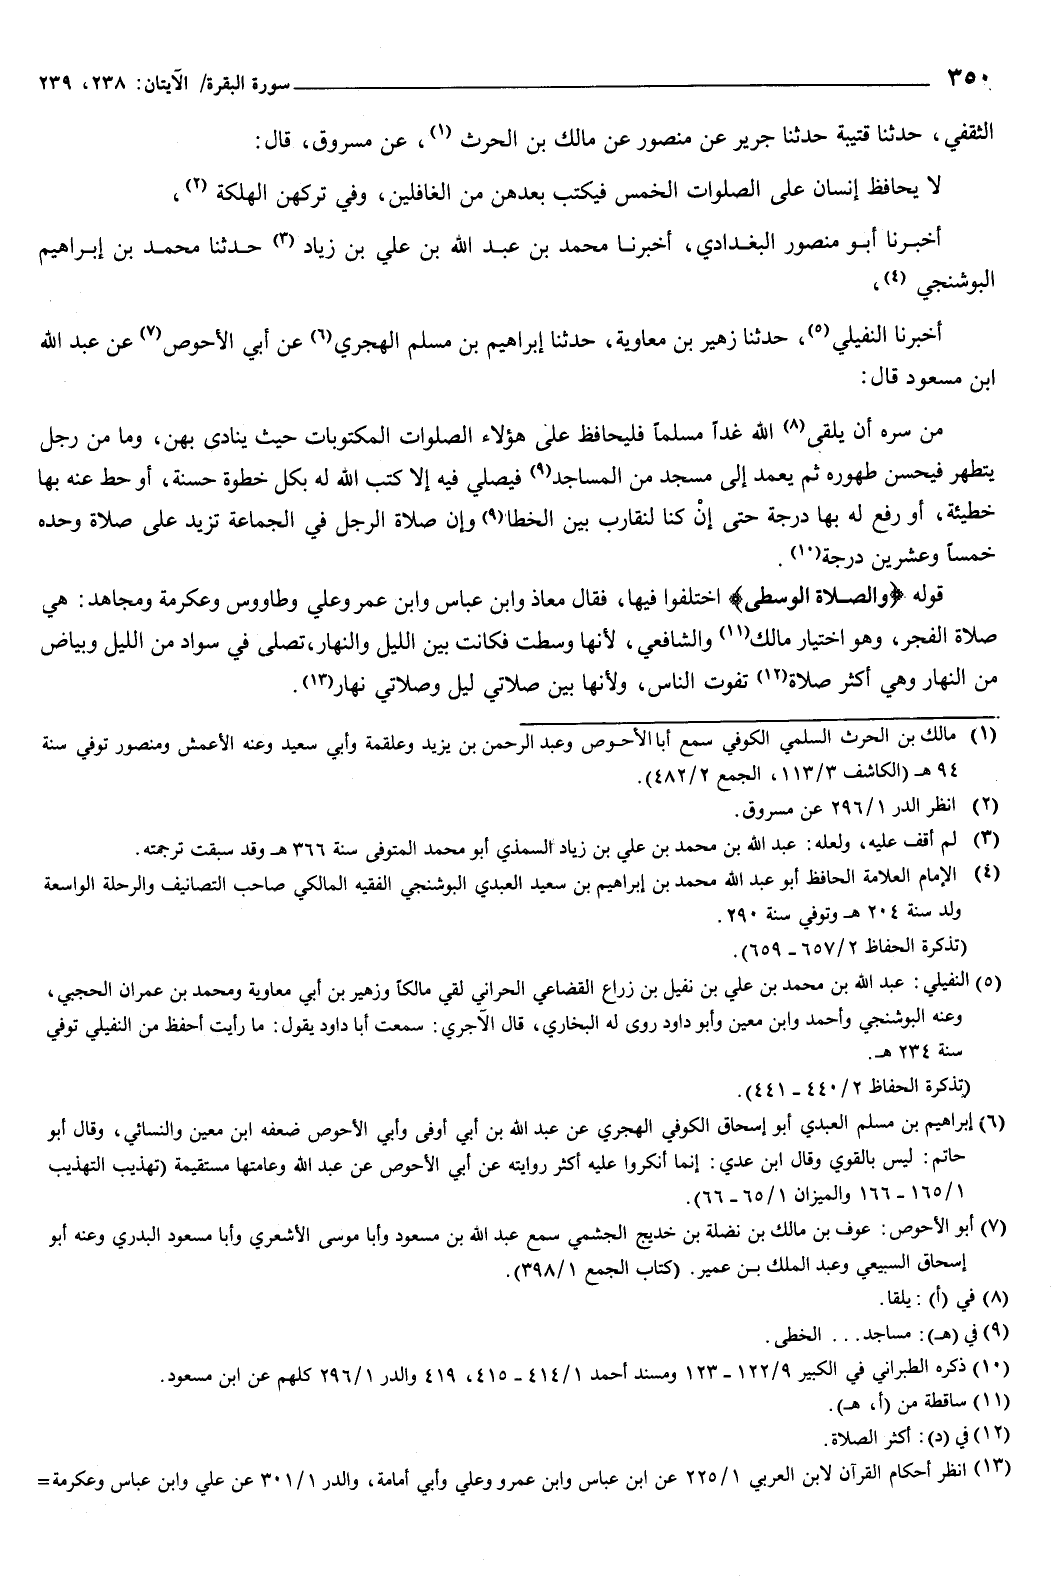 ٣٥٠ سورة البقرة/ الآيتان: ٢٣٨، ٢٣٩
الثقفي، حدثنا قتيبة حدثنا جرير عن منصور عن مالك بن الحرث (١)، عن مسروق، قال:
لا يحافظ إنسان على الصلوات الخمس فيكتب بعدهن من الغافلين، وفي تركهن الهلكة (٢)،
أخبرنا أبو منصور البغدادي، أخبرنا محمد بن عبد الله بن علي بن زياد (٣) حدثنا محمد بن إبراهيم
البوشنجي (٤)،
أخبرنا النفيلي (٥)، حدثنا زهير بن معاوية، حدثنا إبراهيم بن مسلم الهجري(٦) عن أبي الأحوص(٧) عن عبد الله
ابن مسعود قال:
من سره أن يلقى(٨) الله غداً مسلماً فليحافظ على هؤلاء الصلوات المكتوبات حيث ينادى بهن، وما من رجل
يتطهر فيحسن طهوره ثم يعمد إلى مسجد من المساجد(٩) فيصلي فيه إلا كتب الله له بكل خطوة حسنة، أو حط عنه بها
خطيئة، أو رفع له بها درجة حتى إنْ كنا لنقارب بين الخطا(٩) وإن صلاة الرجل في الجماعة تزيد على صلاة وحده
خمساً وعشرين درجة(١٠).
قوله ﴿والصلاة الوسطى﴾ اختلفوا فيها، فقال معاذ وابن عباس وابن عمر وعلي وطاووس وعكرمة ومجاهد: هي
صلاة الفجر، وهو اختيار مالك(١١) والشافعي، لأنها وسطت فكانت بين الليل والنهار، تصلى في سواد من الليل وبياض
من النهار وهي أكثر صلاة(١٢) تفوت الناس، ولأنها بين صلاتي ليل وصلاتي نهار(١٣).
(١) مالك بن الحرث السلمي الكوفي سمع أبا الأحوص وعبد الرحمن بن يزيد وعلقمة وأبي سعيد وعنه الأعمش ومنصور توفي سنة
٩٤ هـ (الكاشف ٣/١١٣، الجمع ٢/٤٨٢).
(٢) انظر الدر ١/٢٩٦ عن مسروق.
(٣) لم أقف عليه، ولعله: عبد الله بن محمد بن علي بن زياد السمذي أبو محمد المتوفى سنة ٣٦٦ هـ وقد سبقت ترجمته.
(٤) الإمام العلامة الحافظ أبو عبد الله محمد بن إبراهيم بن سعيد العبدي البوشنجي الفقيه المالكي صاحب التصانيف والرحلة الواسعة
ولد سنة ٢٠٤ هـ وتوفي سنة ٢٩٠.
(تذكرة الحفاظ ٢/٦٥٧ - ٦٥٩).
(٥) النفيلي: عبد الله بن محمد بن علي بن نفيل بن زراع القضاعي الحراني لقي مالكاً وزهير بن أبي معاوية ومحمد بن عمران الحجبي،
وعنه البوشنجي وأحمد وابن معين وأبو داود روى له البخاري، قال الآجري: سمعت أبا داود يقول: ما رأيت أحفظ من النفيلي توفي
سنة ٢٣٤ هـ.
(تذكرة الحفاظ ٢/٤٤٠ - ٤٤١).
(٦) إبراهيم بن مسلم العبدي أبو إسحاق الكوفي الهجري عن عبد الله بن أبي أوفى وأبي الأحوص ضعفه ابن معين والنسائي، وقال أبو
حاتم: ليس بالقوي وقال ابن عدي: إنما أنكروا عليه أكثر روايته عن أبي الأحوص عن عبد الله وعامتها مستقيمة (تهذيب التهذيب
١/١٦٥ - ١٦٦ والميزان ١/٦٥ - ٦٦).
(٧) أبو الأحوص: عوف بن مالك بن نضلة بن خديج الجشمي سمع عبد الله بن مسعود وأبا موسى الأشعري وأبا مسعود البدري وعنه أبو
إسحاق السبيعي وعبد الملك بن عمير. (كتاب الجمع ١/٣٩٨).
(٨) في (أ) : يلقا.
(٩) في (هـ): مساجد... الخطى.
(١٠) ذكره الطبراني في الكبير ٩/١٢٢ - ١٢٣ ومسند أحمد ١/٤١٤ - ٤١٥، ٤١٩ والدر ١/٢٩٦ كلهم عن ابن مسعود.
(١١) ساقطة من (أ، هـ).
(١٢) في (د): أكثر الصلاة.
(١٣) انظر أحكام القرآن لابن العربي ١/٢٢٥ عن ابن عباس وابن عمرو وعلي وأبي أمامة، والدر ١/٣٠١ عن علي وابن عباس وعكرمة=